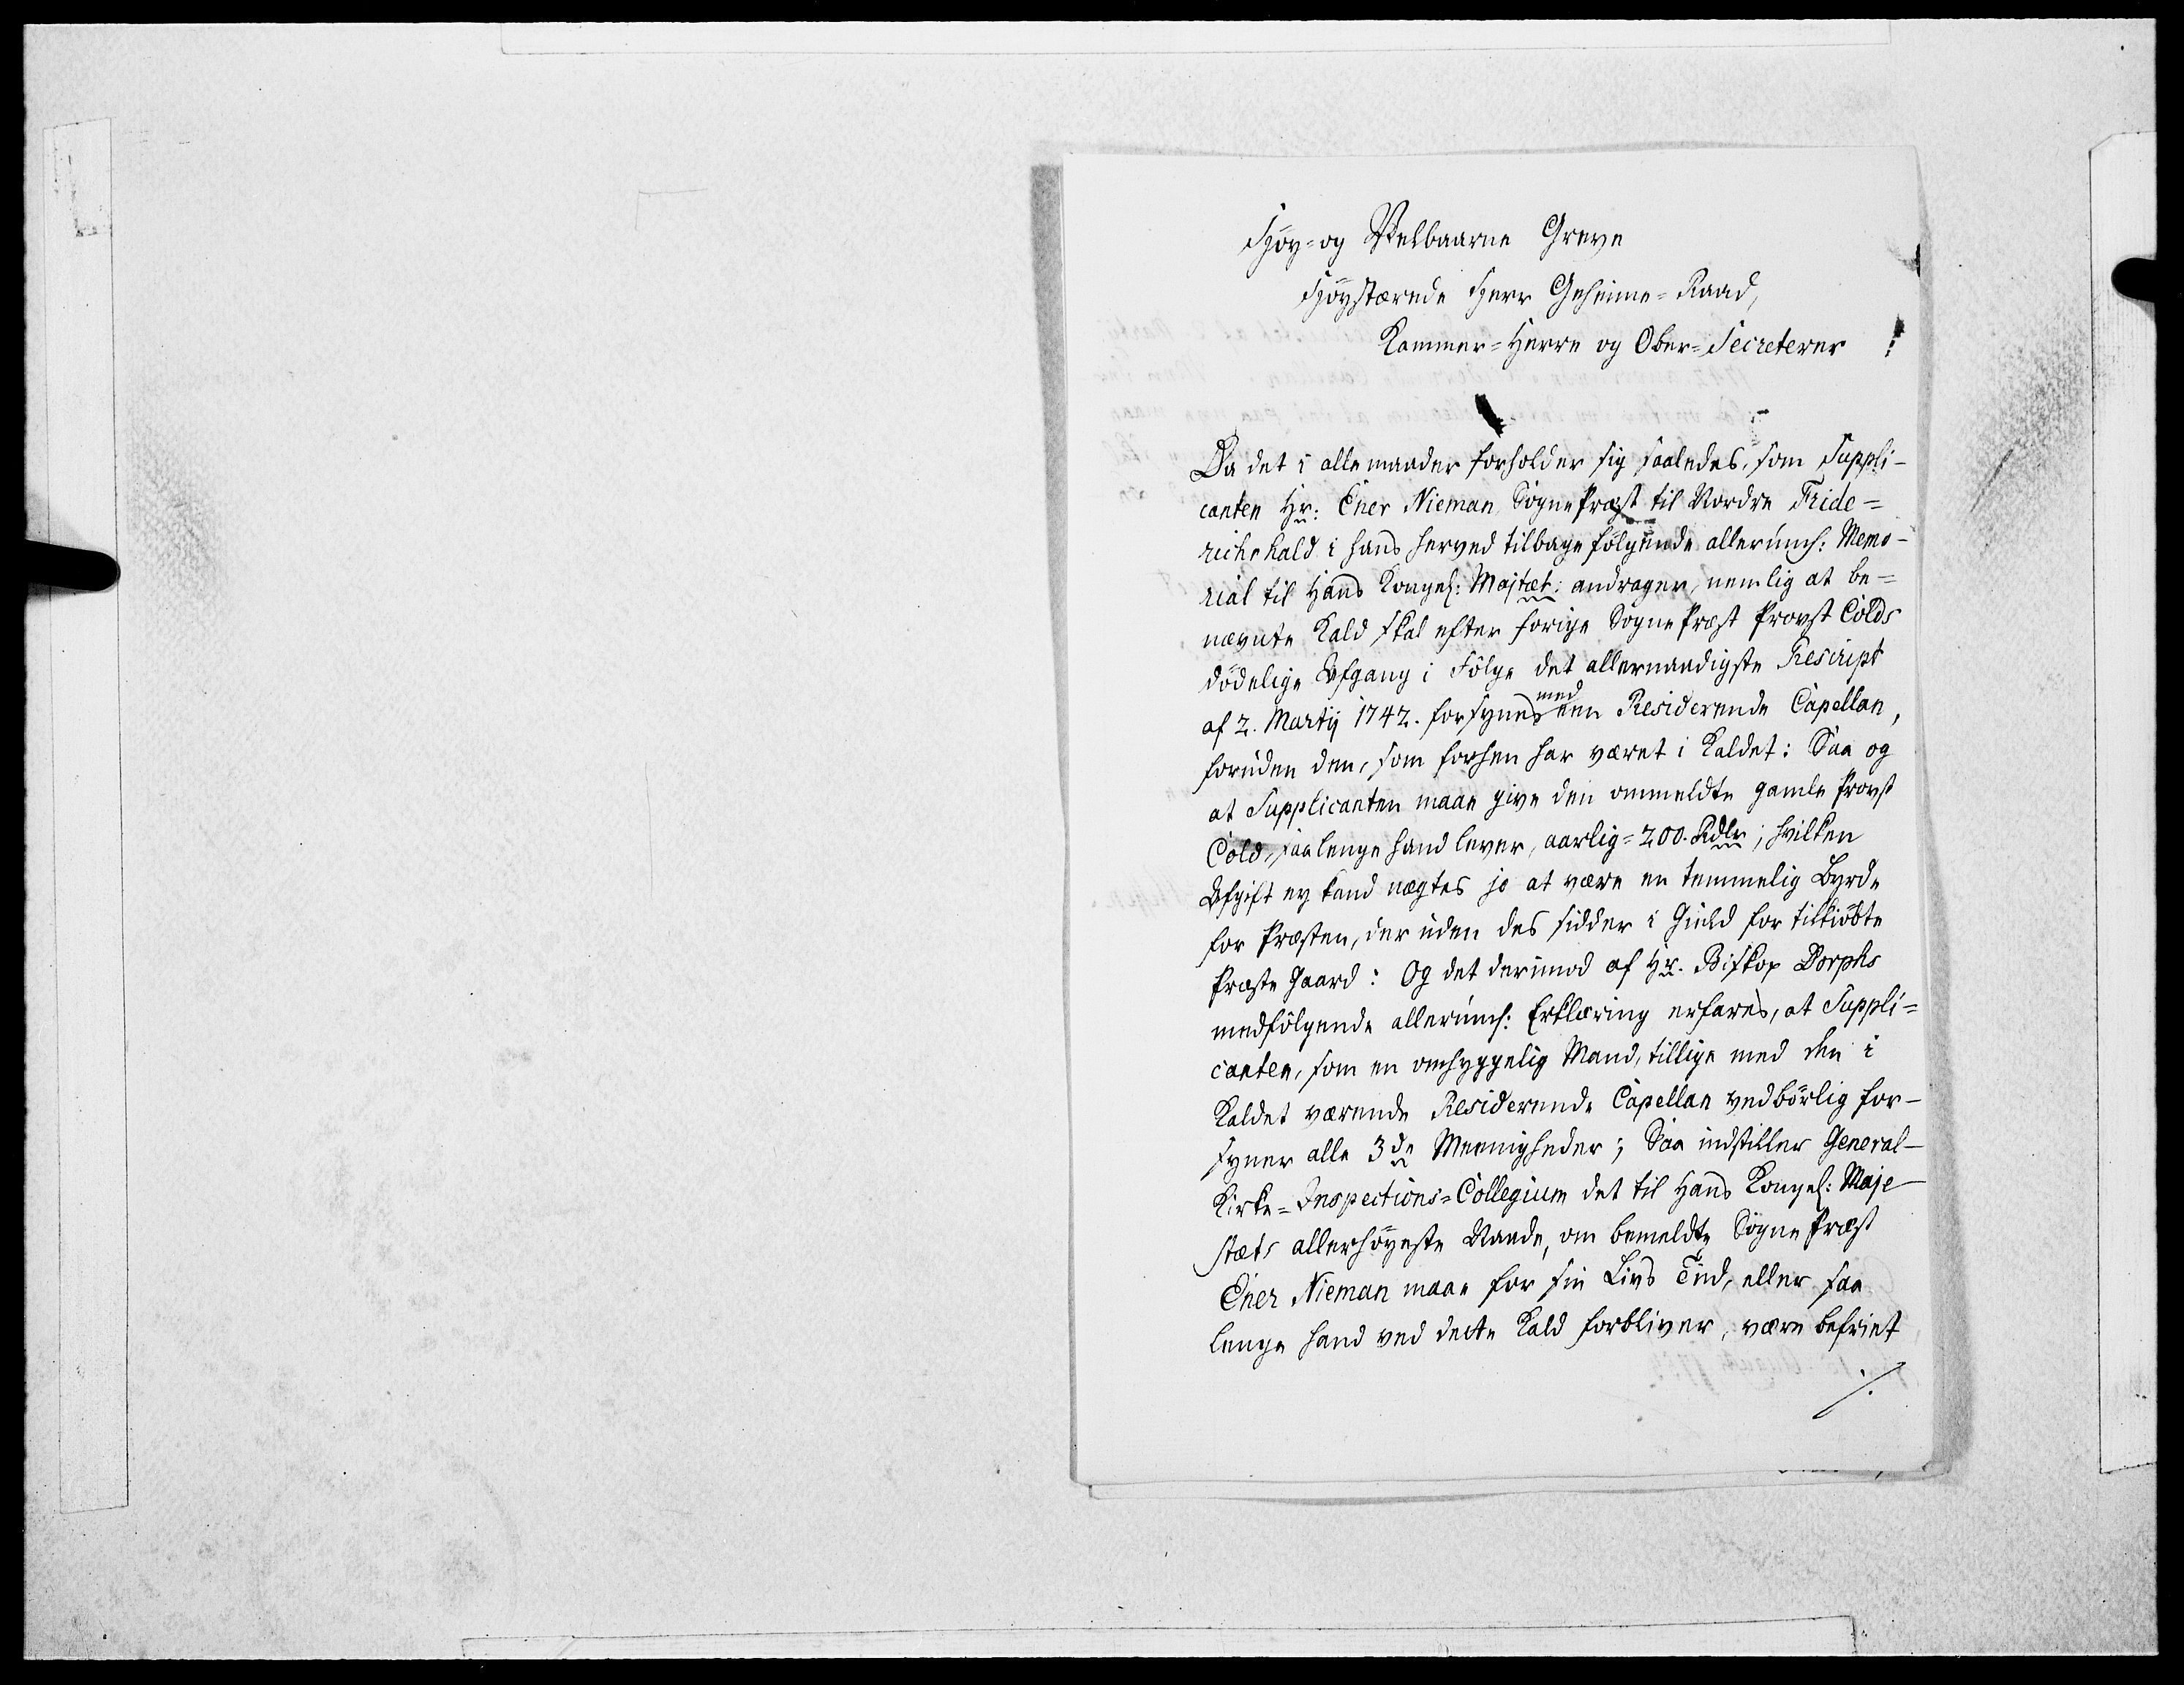 Høy- og Velbaarne Greve
Høystærede Herr Geheime-Raad,
Kammer-Herre og Ober-Secreterer!
Da det i alle maader forholder sig saaledes, som Suppli-
canten Hr: Ener Nieman SognePræst til Nordre Fride-
richshald i hans herved tilbage følgende allerund: Memo-
rial til Hans Kongel: Majtæt: andrager, nemlig at be-
nævnte Kald skal efter forige SognePræst Provst Colds
dödelige Afgang i Fölge det allernaadigste Rescript
af 2. Martij 1742. forsynes med een Residerende Capellan,
foruden den, som forhen har været i Kaldet: Saa og
at Supplicanten maae give den ommeldte gamle Provst
Cold, saalenge hand lever, aarlig = 200. Rdlr; hvilken
Afgift ey kand nægtes jo at være en temmelig Byrde
for Præsten, der uden des sidder i Gield for tilkiöbte
Præste Gaard: Og det derimod af Hr. Biskop Dorphs
medfölgende allerund: Erklæring erfares, at Suppli-
canten, som en omhyggelig Mand, tillige med den i
Kaldet værende Residerende Capellan vedbörlig for-
syner alle 3de Meenigheder; Saa indstiller General-
Kirke-Inspections-Collegium det til Hans Kongel: Maje-
stæts allerhöyeste Naade, om bemeldte SognePræst
Ener Nieman maae for sin Livs Tiid, eller saa
lenge hand ved dette Kald forbliver, være befriet
./.